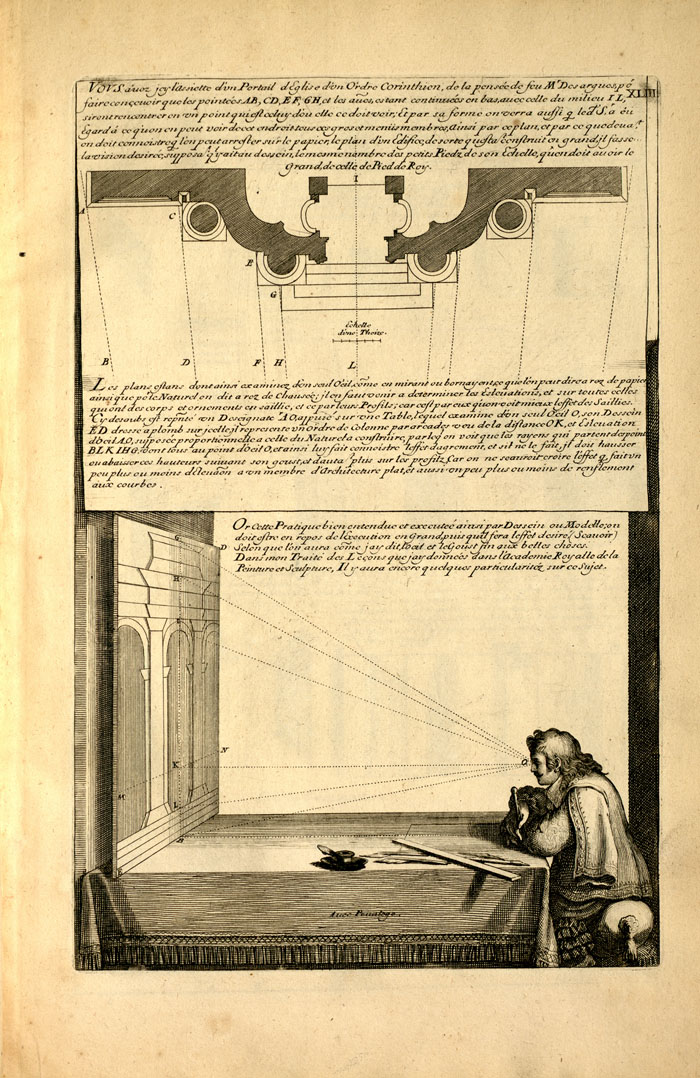 VOVS avez jcy l'assiette d'vn Portail d'Eglise d'vn Ordre Corinthien, de la pensée de feu Mr Desargues, pr
XLIII
faire conçeuoir que les pointées AB, CD, EF, GH, et les autes, estant continuées en bas, auec celle du milieu IL,
siront rencontrer en vn point qui est celuy d'ou elle ce doit voir; Et par sa forme on verra aussi q le dt Sr a eu
Egard a ce qu'on en peut voir de cet endroit tous ces gros et menus membres, Ainsi par ce plan, et par ce qu'e
on doit connoistre q lon peut arrester sur le papier, le plan d'vn Edifice, de sorte qu'estant construit en grand, il fasse
la vision desirée, supposé q'y ait au dessein, le mesme nombre des petits Piedz de son Echelle, qu'en doit auoir le
Grand, de celle de Pied de Roy.
I
A
C
E
G
Echelle
d'vne Thoize.
B D F H L
Les plans estans dont ainsi examinez d'vn seul Oeil, cōme en mirant ou bornayent, ce que l'on peut dire a rez de papier
ainsi que pr le Naturel on dit a rez de Chausée; il en faut venir a determiner les Esleuations, et sur toutes celles
qui ont des corps et ornements en saillie, et ce par leurs Profils; car c'est par eux qu'on voit mieux l'effet des Saillies.
Cy dessouds est repñté vn Desseignateur AO apuié sur vne Table, lequel examine d'vn seul Oeil O, son Dessein
ED dressé a plomb sur jcelle; il represente vn ordre de Colonne par arcades veu de la distance OK, et Esleuation
d'oeil AO, supposée proportionnelle a celle du Naturel a construire, par là on voit que les rayons qui partent des points
BLKIHG, vont tous au point d'oeil O, et ainsi luy fait connoistre l'effet du grement, et s'il ne le fait, il doit hausser
ou abaisser ces hauteurs suiuant son goust, et d'autāt plus sur les profilz, Car on ne sçauroit croire l'effet q fait vn
peu plus ou moins d'éleuāon a vn membre d'Architecture plat, et aussi vn peu plus ou moins de renflement
aux courbes.
Or Cette Pratique bien entendue et executeé ainsi par Dessein ou Modelle, on
doit estre en repos de l'execution en Grand, puis qu'il fera l'effet desiré, (Scauoir)
Selon que l'on aura cōme jay dit, l'oeil et le Goust fin aux belles choses.
Dans mon Traité des Leçons que jay données dans l'Academie Royalle de la
Peinture et Sculpture, Il y aura encore quelques particularitez sur ce Sujet.
G
D
H
I
N
K
O
M
L
B
Auec Priuilege.